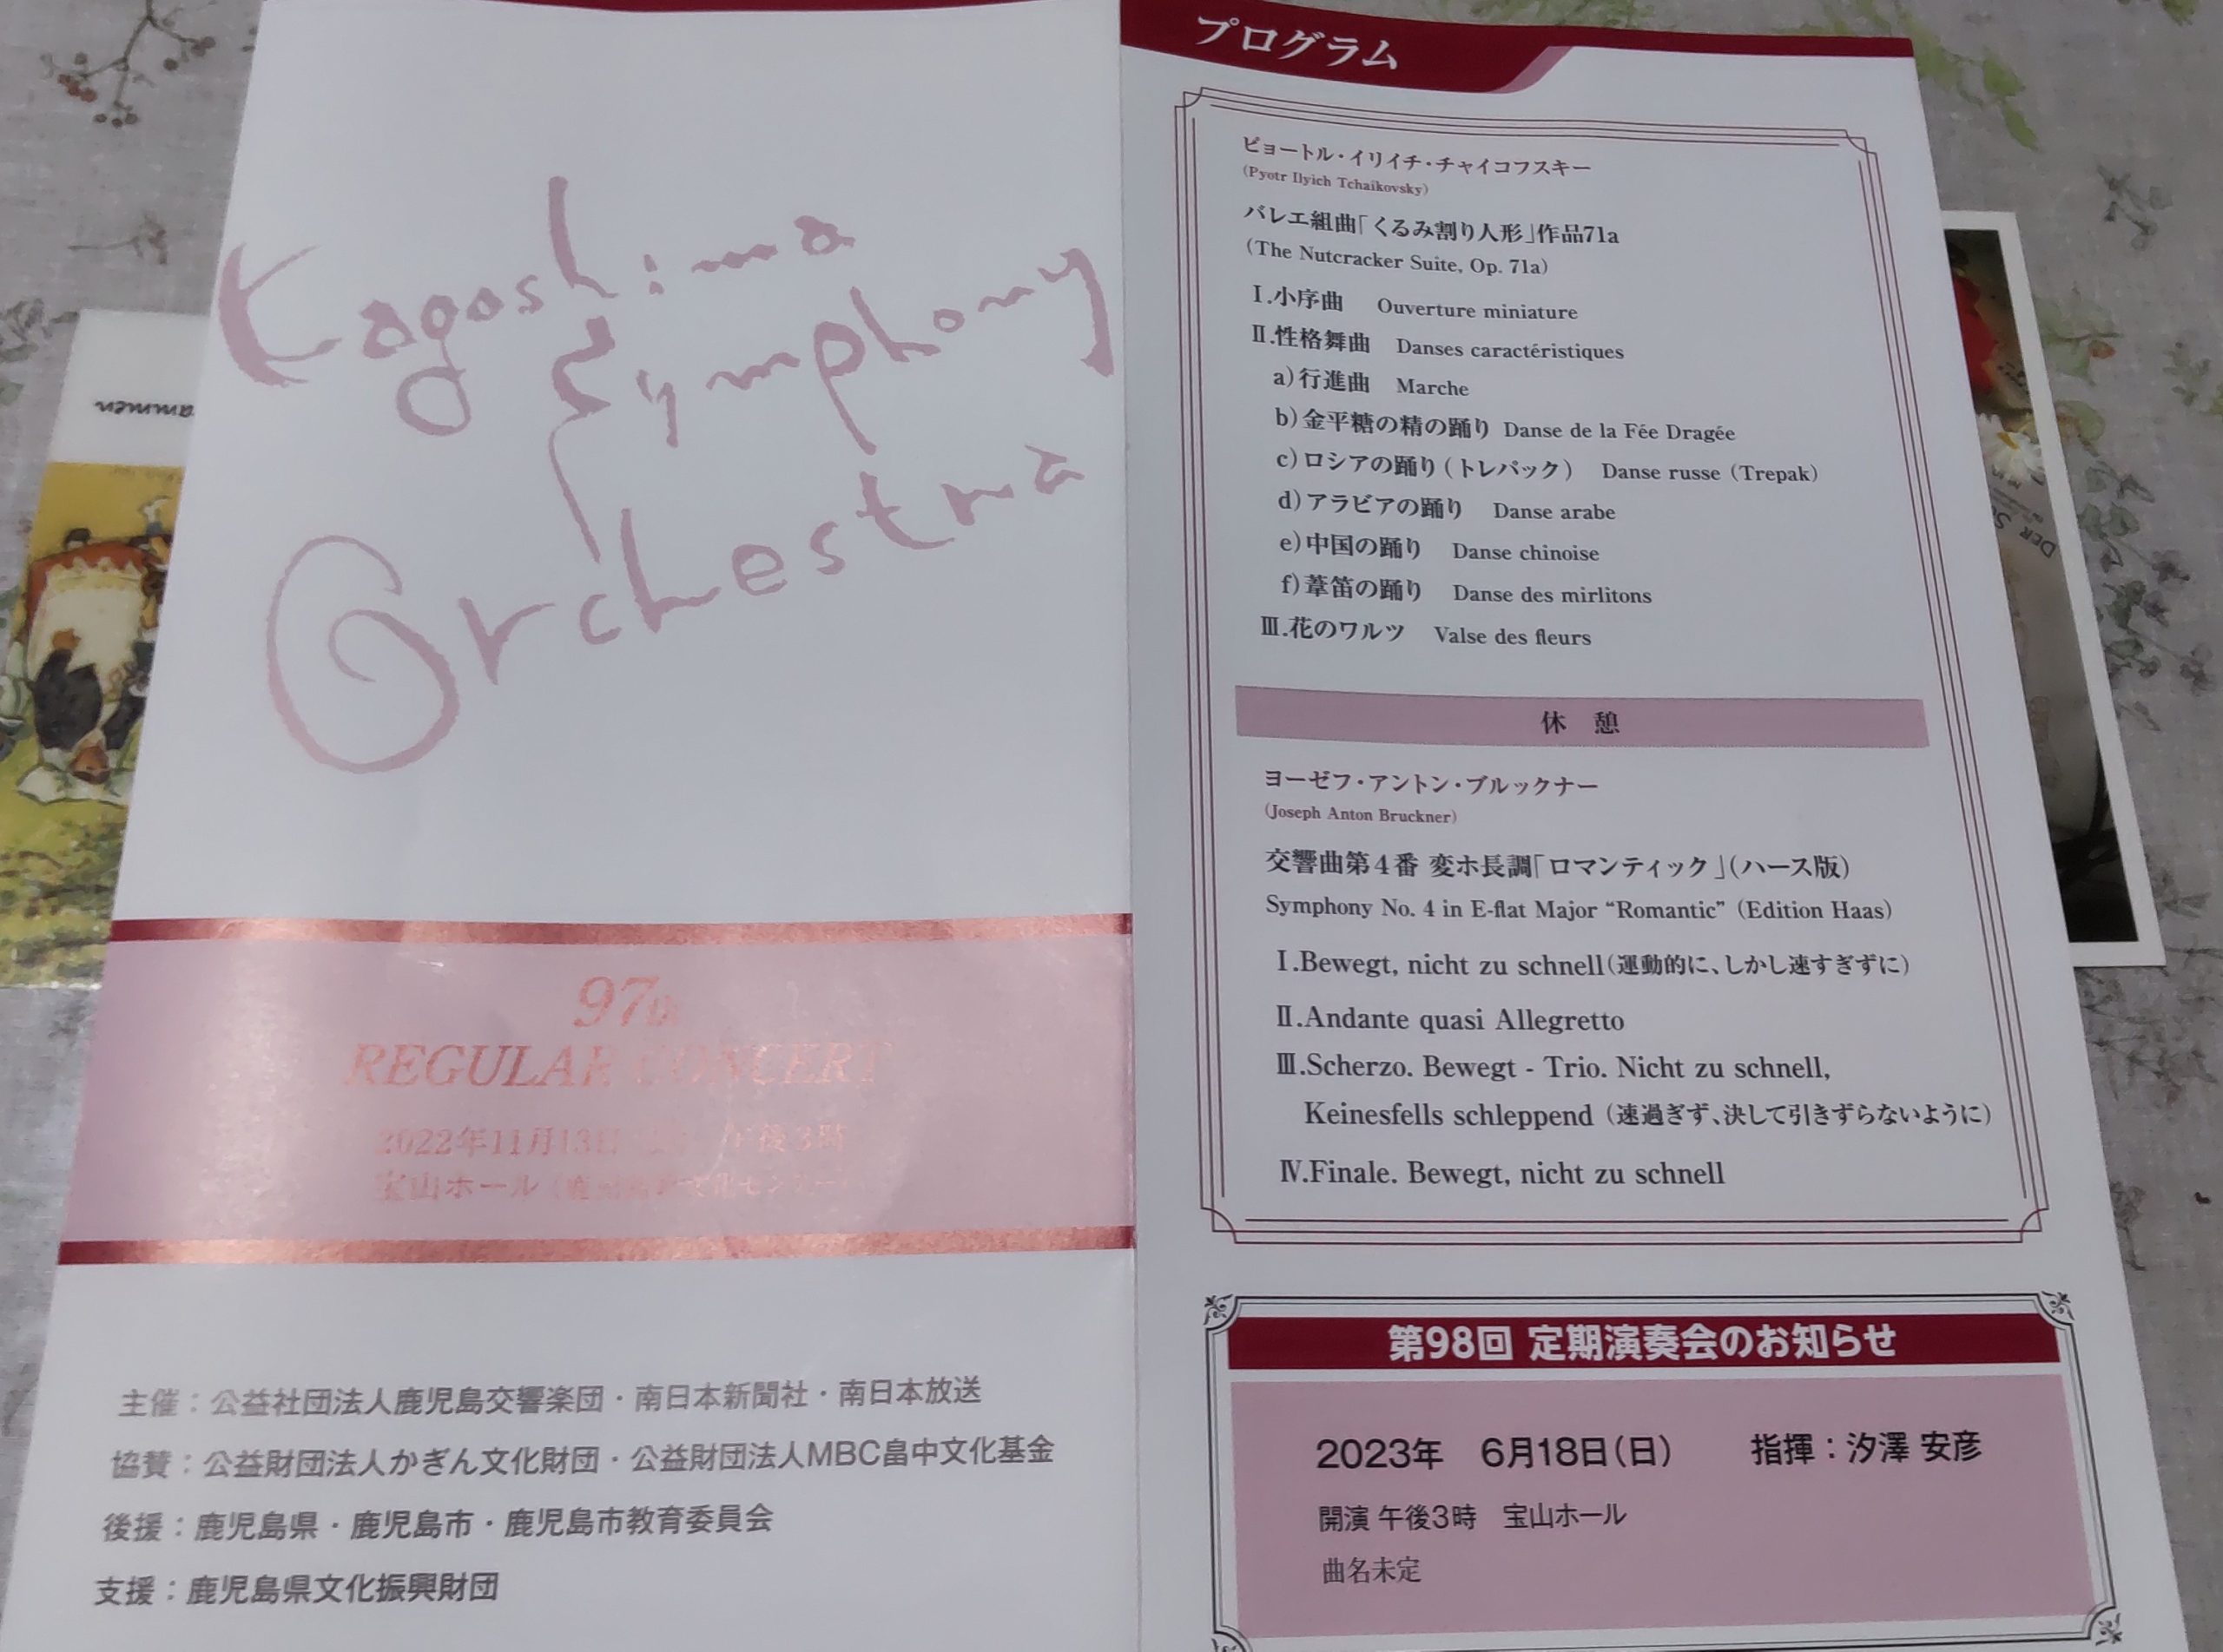 Kagoshima
Symphony
Orchestra
97th
REGULAR CONCERT
2022年11月13日 午後3時
宝山ホール
主催：公益社団法人鹿児島交響楽団・南日本新聞社・南日本放送
協賛：公益財団法人かぎん文化財団・公益財団法人MBC畠中文化基金
後援：鹿児島県・鹿児島市・鹿児島市教育委員会
支援：鹿児島県文化振興財団
プログラム
ピョートル・イリイチ・チャイコフスキー
(Pyotr Ilyich Tchaikovsky)
バレエ組曲「くるみ割り人形」作品71a
(The Nutcracker Suite, Op. 71a)
Ⅰ.小序曲 Ouverture miniature
Ⅱ.性格舞曲 Danses caractéristiques
a)行進曲 Marche
b)金平糖の精の踊り Danse de la Fée Dragée
c)ロシアの踊り(トレパック) Danse russe (Trepak)
d)アラビアの踊り Danse arabe
e)中国の踊り Danse chinoise
f)葦笛の踊り Danse des mirlitons
Ⅲ.花のワルツ Valse des fleurs
休 憩
ヨーゼフ・アントン・ブルックナー
(Joseph Anton Bruckner)
交響曲第4番 変ホ長調「ロマンティック」(ハース版)
Symphony No. 4 in E-flat Major “Romantic” (Edition Haas)
Ⅰ.Bewegt, nicht zu schnell(運動的に、しかし速すぎずに)
Ⅱ.Andante quasi Allegretto
Ⅲ.Scherzo. Bewegt - Trio. Nicht zu schnell,
Keinesfells schleppend (速過ぎず、決して引きずらないように)
Ⅳ.Finale. Bewegt, nicht zu schnell
第98回 定期演奏会のお知らせ
2023年 6月18日(日) 指揮：汐澤 安彦
開演 午後3時 宝山ホール
曲名未定
ammen
DER